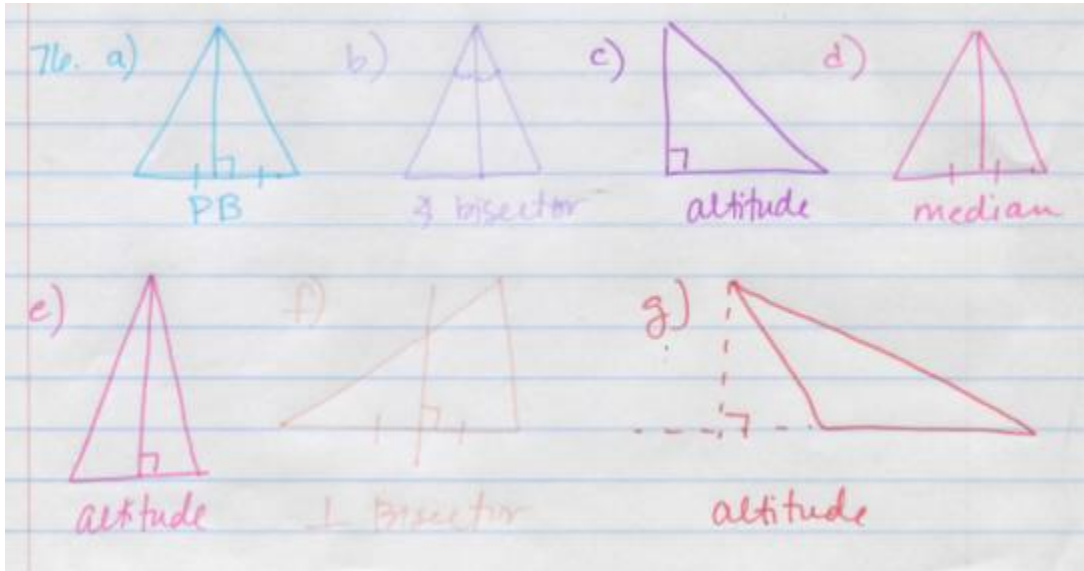 76. a) b) c) d)
PB ∡ bisector altitude median
e) f) g)
altitude ⊥ Bisector altitude